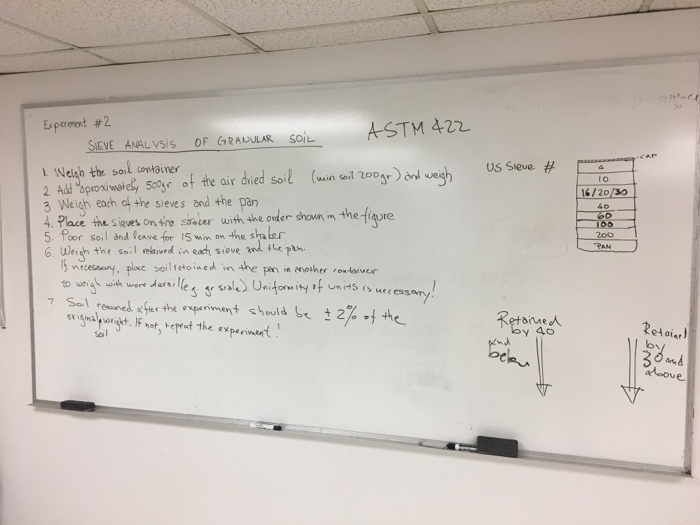 Experiment #2
SIEVE ANALYSIS OF GRANULAR SOIL
ASTM 422
1. Weigh the soil container
2 Add aproximately 500gr of the air dried soil (min soil 200gr) and weigh
3 Weigh each of the sieves and the pan
4. Place the sieves on the shaker with the order shown in the figure
5. Poor soil and leave for 15 min on the shaker
6. Weigh the soil retained in each sieve and the pan.
If necessary, place soil retained in the pan in another container
to weigh with more detail (e.g. gr scale). Uniformity of units is necessary!
7. Soil retained after the experiment should be ± 2% of the
original soil weight. If not, repeat the experiment!
US Sieve #
CAP
4
10
16/20/30
40
60
100
200
PAN
Retained
by 40
and
below
Retained
by
30 and
above